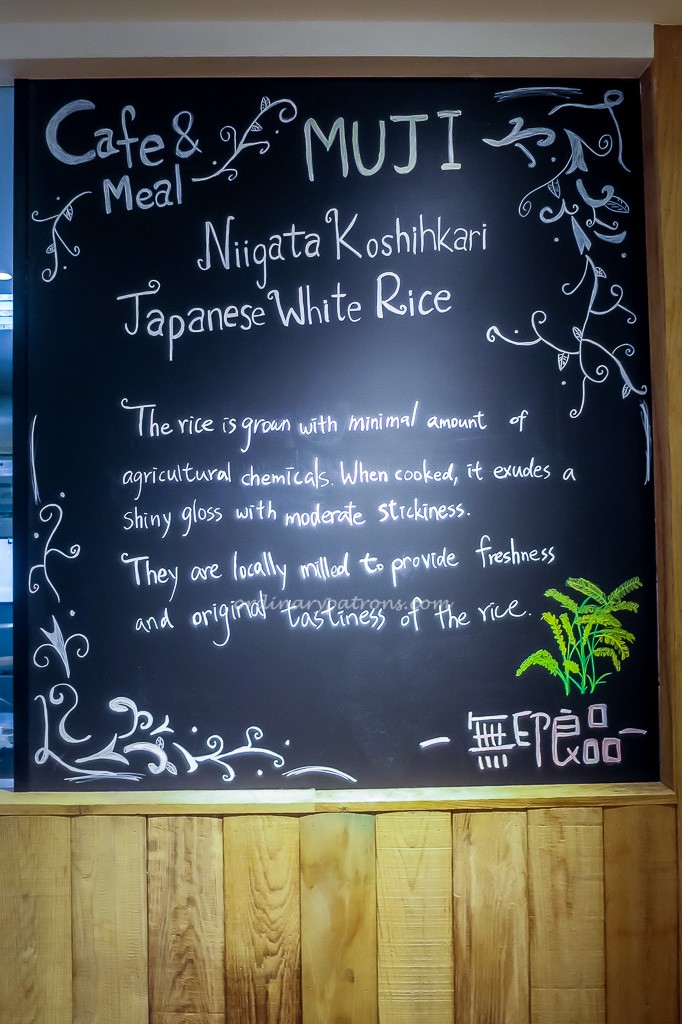 Cafe & MUJI
Meal
Niigata Koshihkari
Japanese White Rice
The rice is grown with minimal amount of
agricultural chemicals. When cooked, it exudes a
shiny gloss with moderate stickiness.
They are locally milled to provide freshness
ordinarypatrons.com
and original tastiness of the rice.
- 無印良品 -